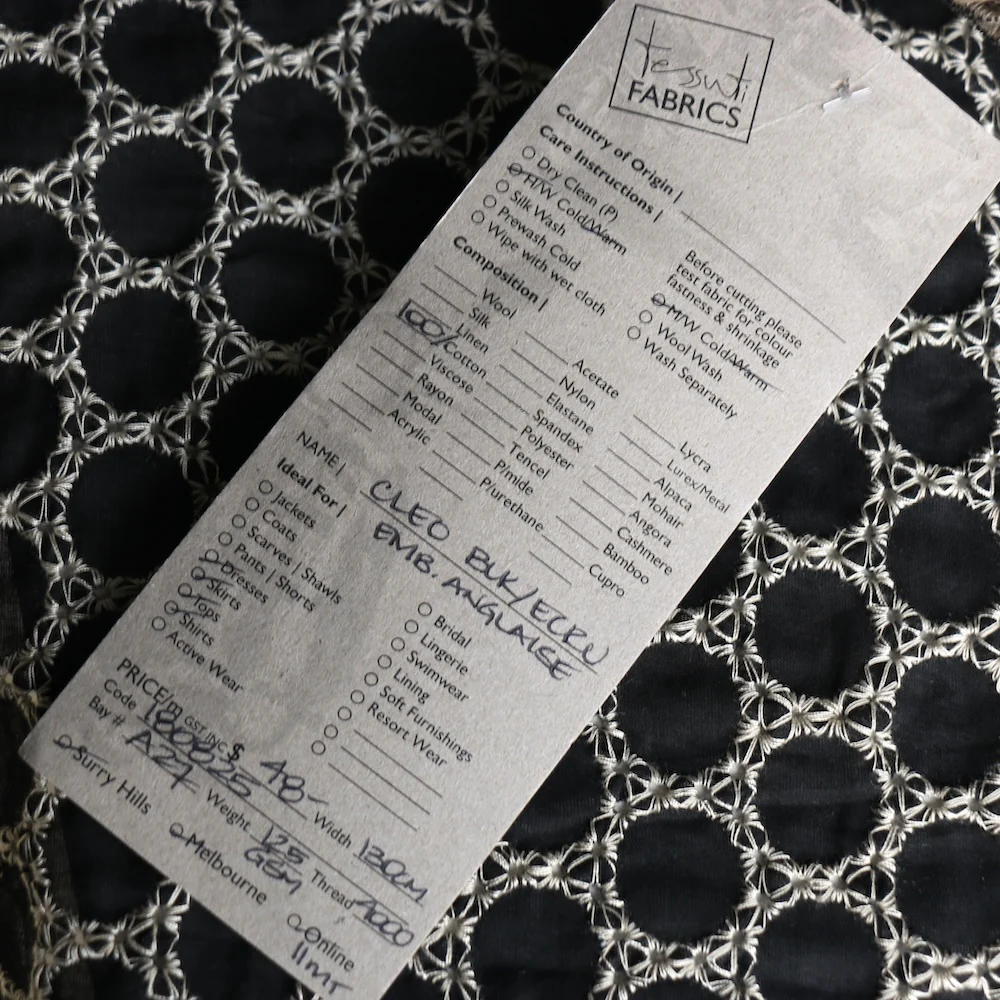 tessuti
FABRICS
Country of Origin |
Care Instructions |
Dry Clean (P)
H/W Cold/Warm
Silk Wash
Prewash Cold
Wipe with wet cloth
Before cutting please
test fabric for colour
fastness & shrinkage
M/W Cold/Warm
Wool Wash
Wash Separately
Composition |
Wool
Silk
Linen
100/ Cotton
Viscose
Rayon
Modal
Acrylic
Acetate
Nylon
Elastane
Spandex
Polyester
Tencel
P/mide
P/urethane
Lycra
Lurex/Metal
Alpaca
Mohair
Angora
Cashmere
Bamboo
Cupro
NAME | CLEO BLK/ECRU
EMB. ANGLAISE
Ideal For |
Jackets
Coats
Scarves | Shawls
Pants | Shorts
Dresses
Skirts
Tops
Shirts
Active Wear
Bridal
Lingerie
Swimwear
Lining
Soft Furnishings
Resort Wear
PRICE/m GST INC $ 48-
Code 1808025 Width 130cm
Bay # A27 Weight 125 GSM Thread 1000
Surry Hills
Melbourne
Online
11mT